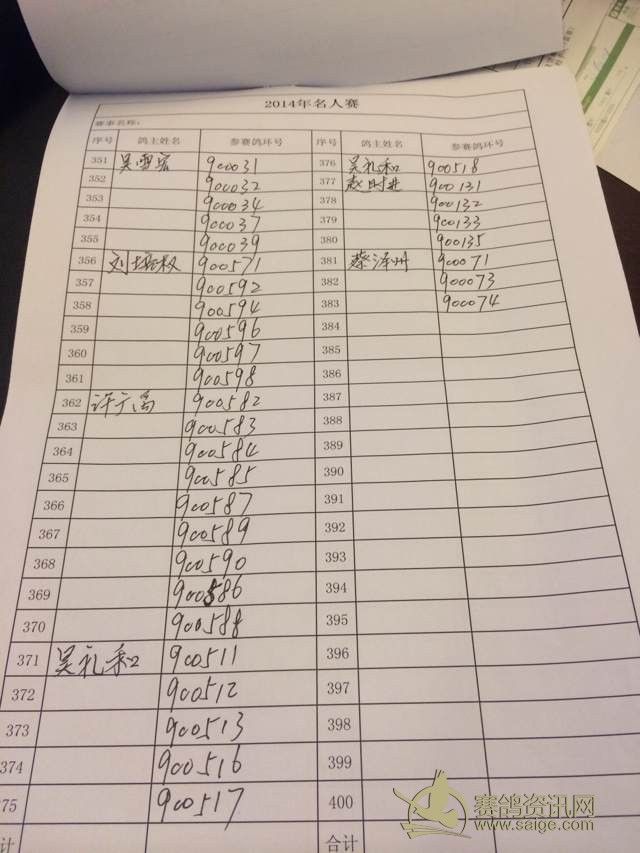 2014年名人赛
赛事名称:
序号 鸽主姓名 参赛鸽环号 序号 鸽主姓名 参赛鸽环号
351 吴雪宏 900031 376 吴礼和 900518
352 900032 377 赵时进 900131
353 900034 378 900132
354 900037 379 900133
355 900039 380 900135
356 刘培权 900571 381 蔡泽州 900071
357 900592 382 900073
358 900594 383 900074
359 900596 384
360 900597 385
361 900598 386
362 许广禹 900582 387
363 900583 388
364 900584 389
365 900585 390
366 900587 391
367 900589 392
368 900590 393
369 900586 394
370 900588 395
371 吴礼和 900511 396
372 900512 397
373 900513 398
374 900516 399
375 900517 400
计 合计
赛鸽资讯网
www.saige.com